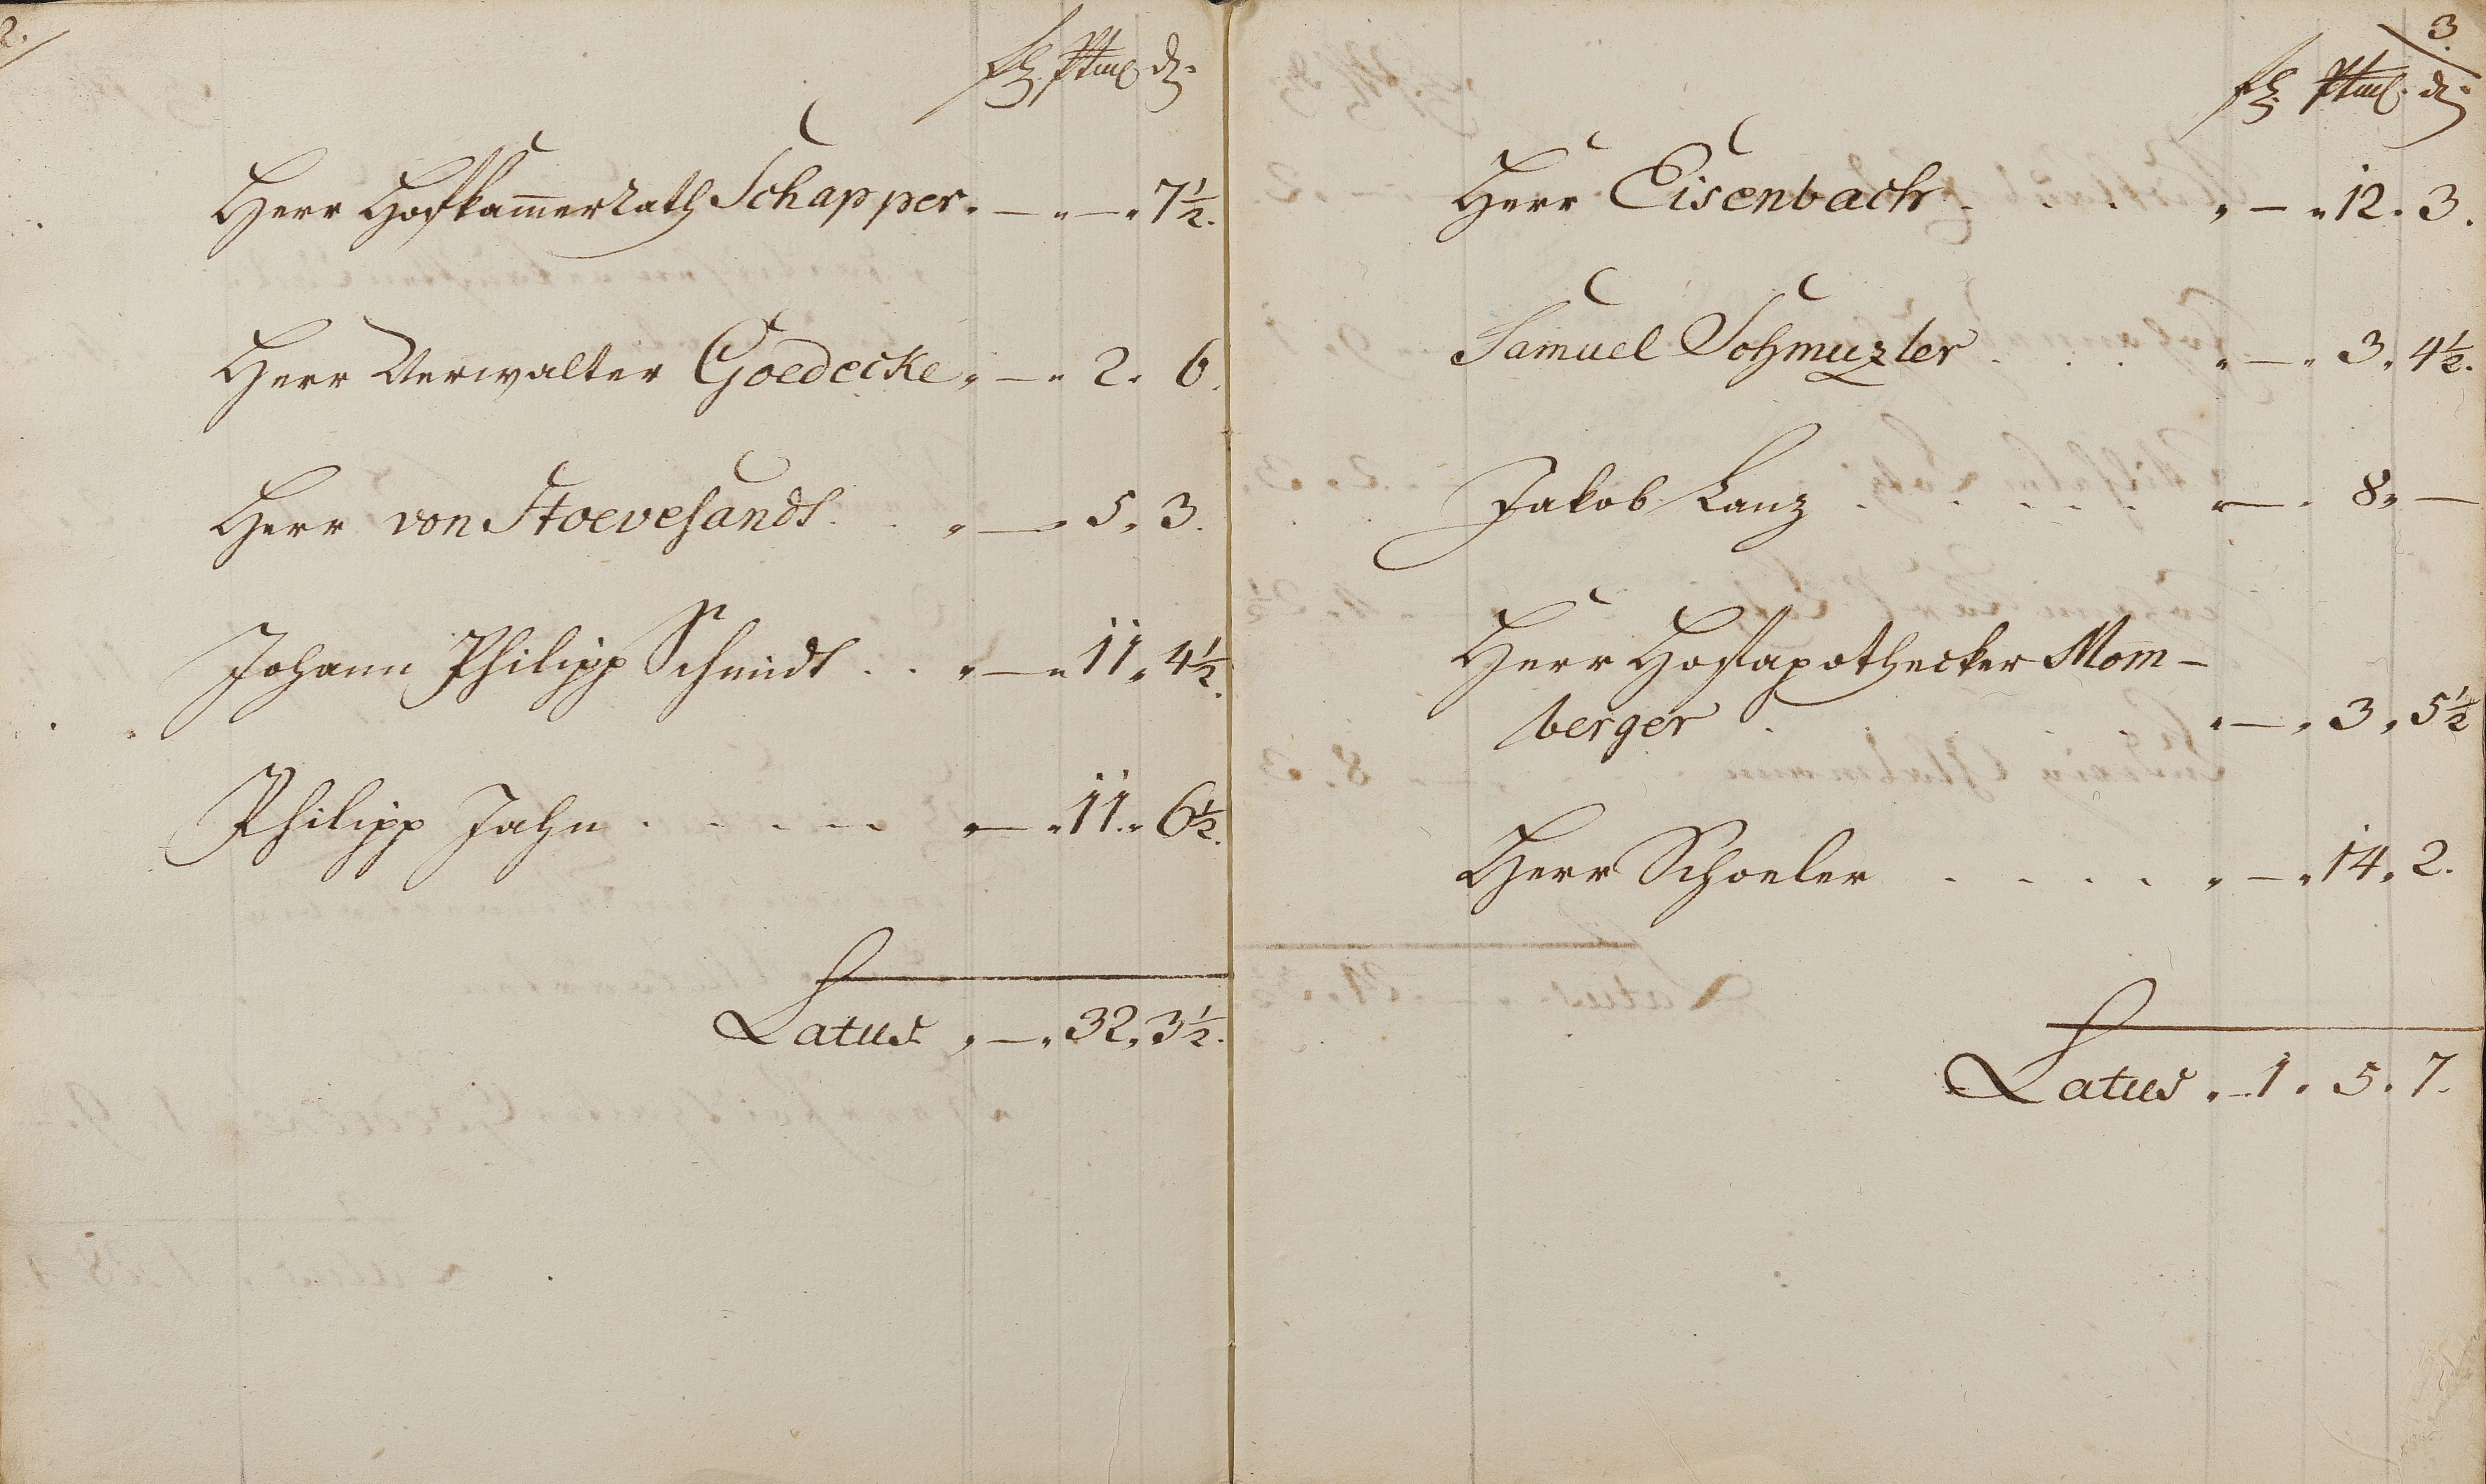 2.
Herr Hofkam̅errath Schapper. — " — " 7½.
Herr Verwalter Goedecke " — " 2. 6.
Herr von Stoevesandt . . " — " 5. 3.
Johann Philipp Schmidt . . " — " 11 " 4½.
Philipp Jahn . . . . . " — " 11. " 6½.
Latus " — " 32. 3½.
3.
Herr Eisenbach . . . " — " 12. 3.
Samuel Schmuzler . . . " — " 3. 4½.
Jakob Lanz . . . . . " — . 8. —
Herr Hofapothecker Mom-
berger . " — " 3. 5½
Herr Schoeler . . . . " — " 14. 2.
Latus " 1. 5. 7.